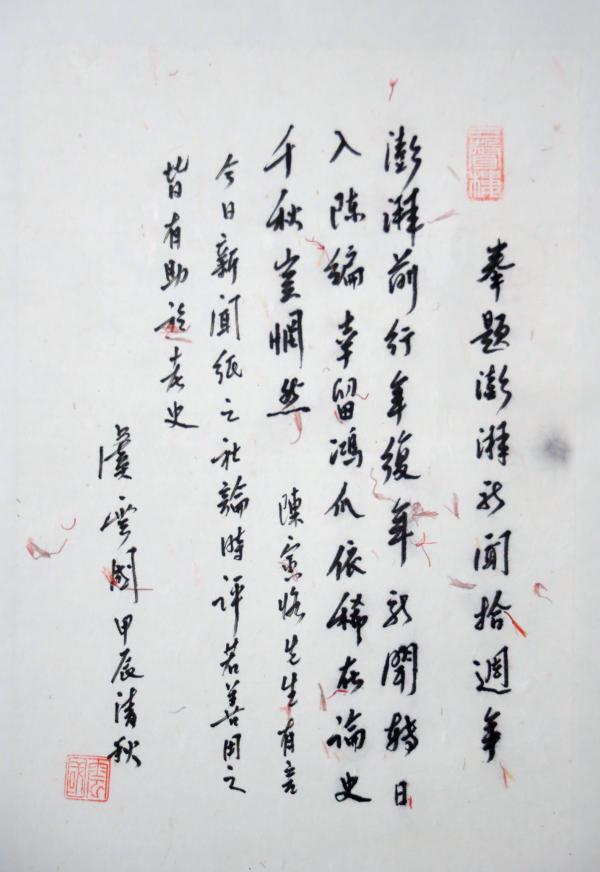 奉题澎湃新闻拾週年
澎湃前行年復年新聞轉日
入陈编幸留鴻爪依稀在論史
千秋豈惘然
陳寅恪先生有言
今日新聞纸之社論時评若善用之
皆有助於考史
虞雲國甲辰清秋